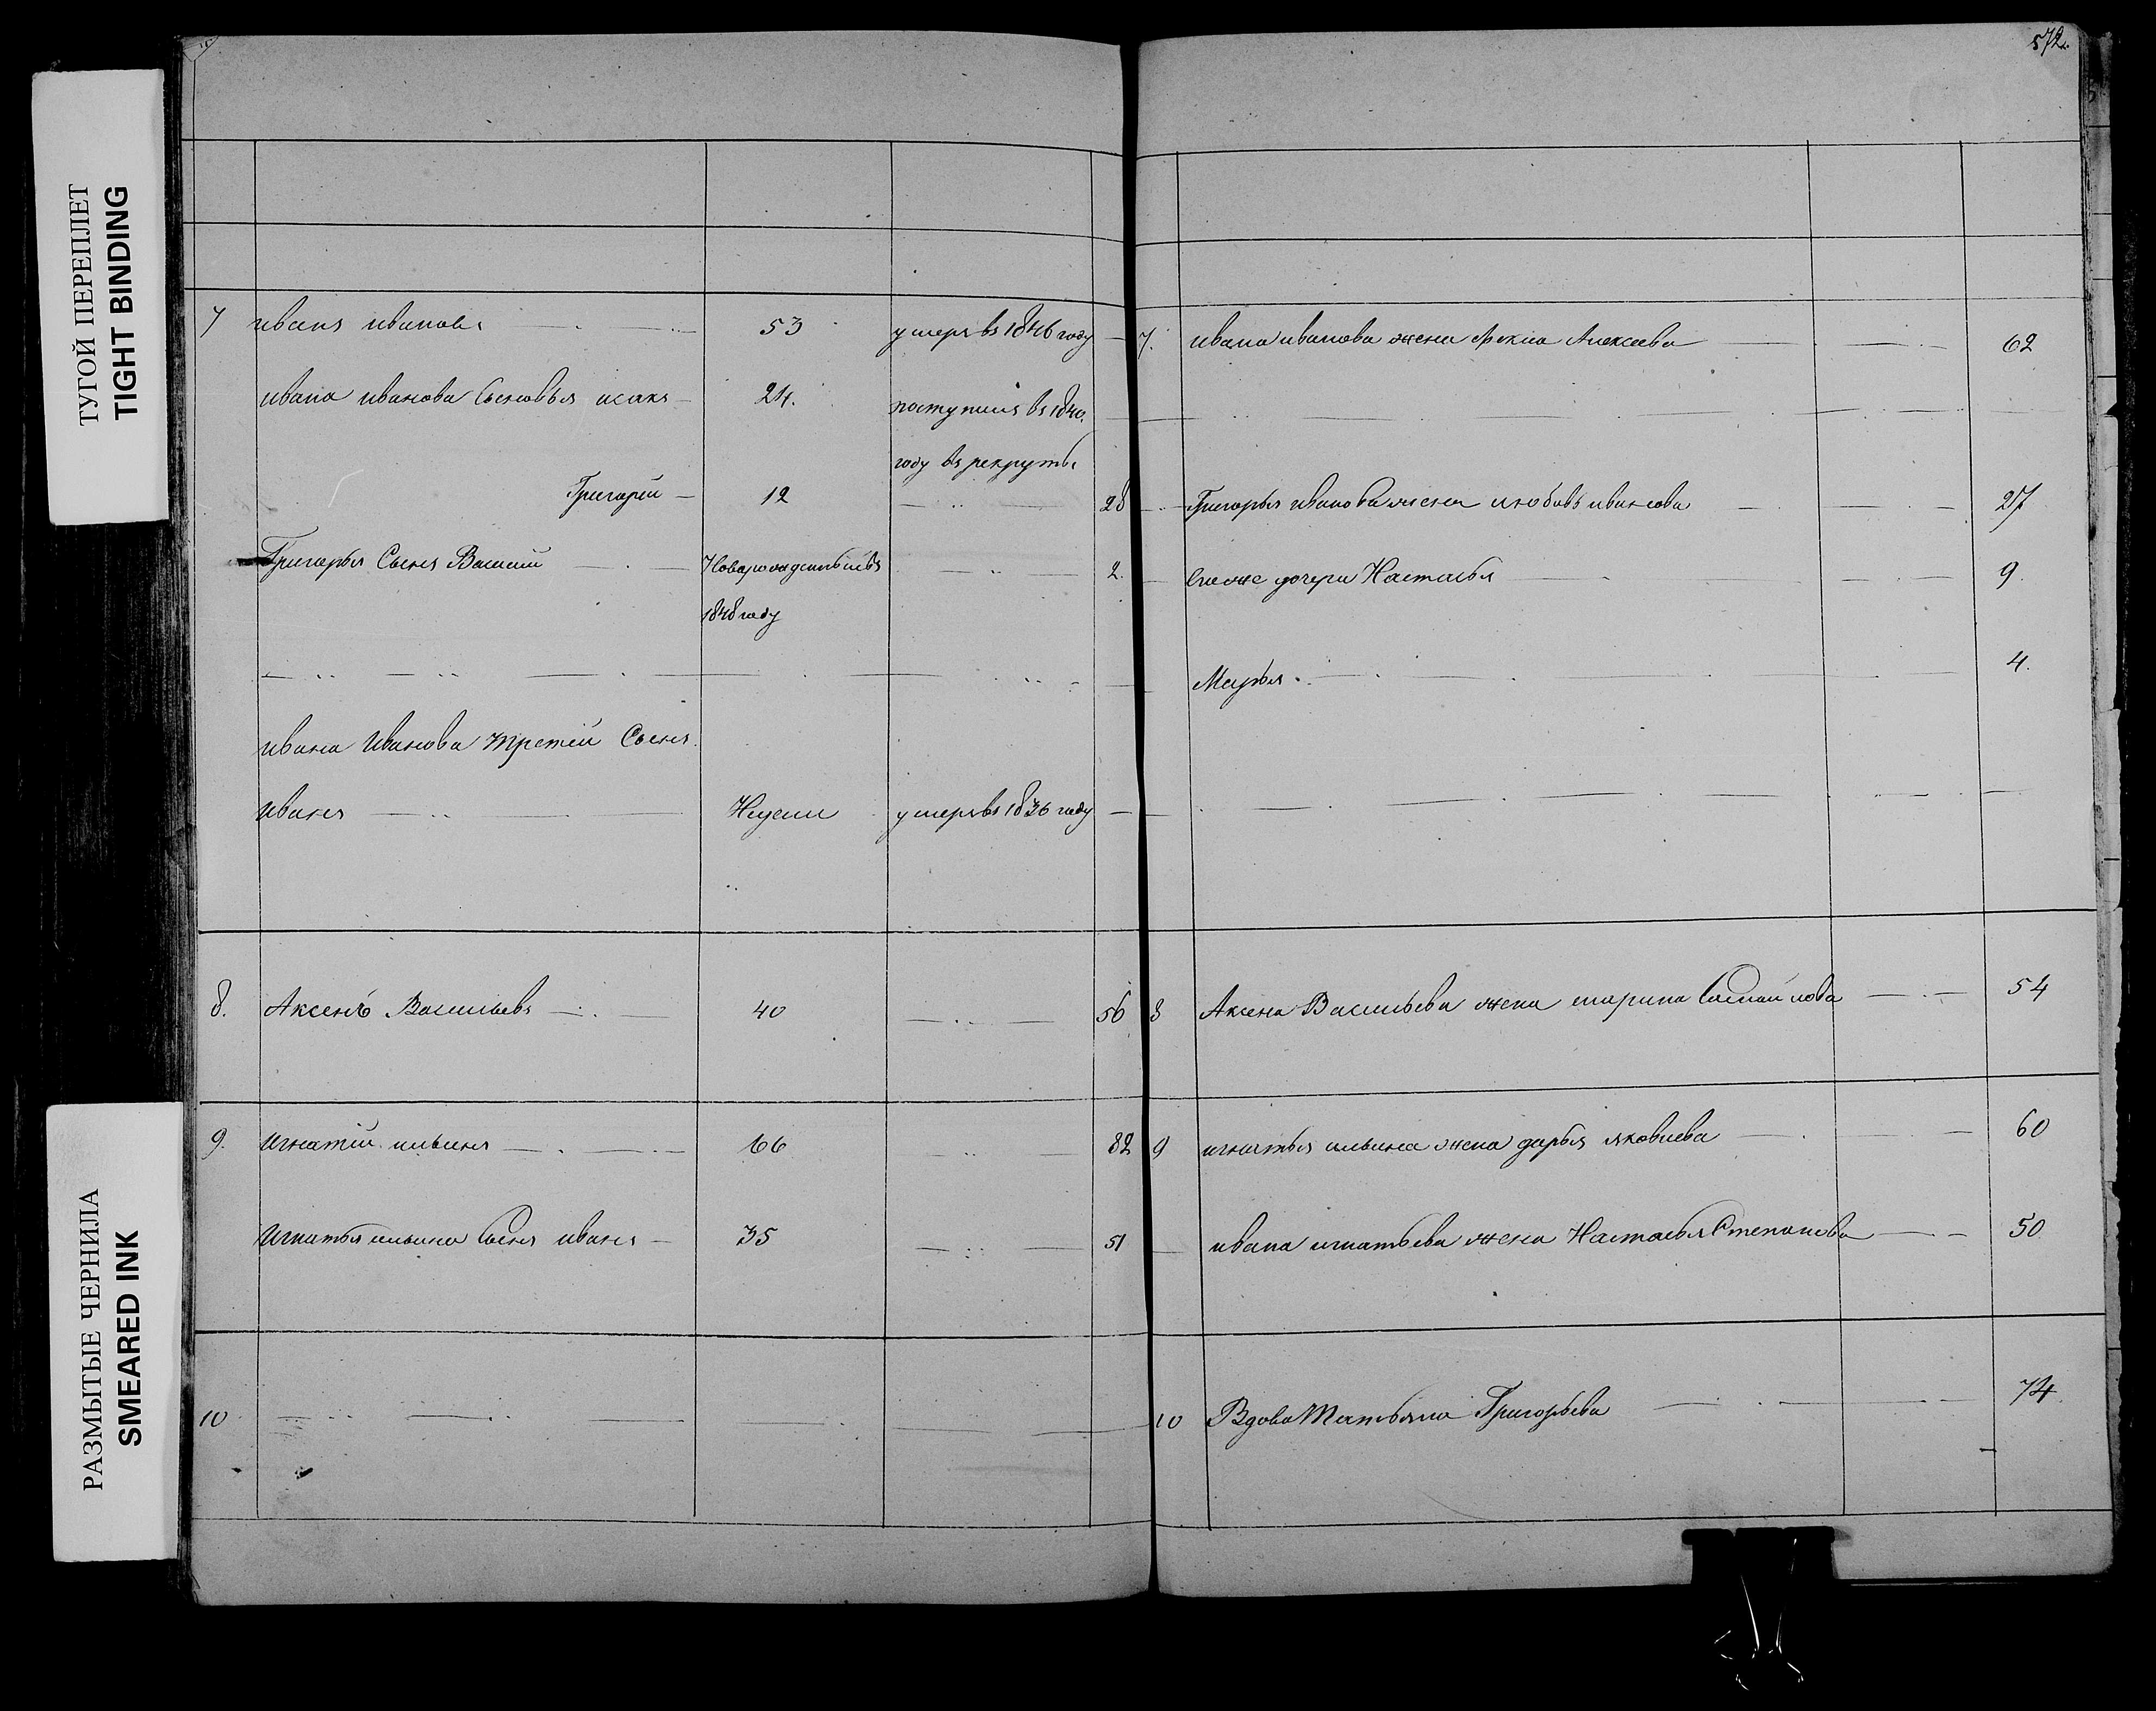 572.
ТУГОЙ ПЕРЕПЛЕТ
TIGHT BINDING
РАЗМЫТЫЕ ЧЕРНИЛА
SMEARED INK
7 иванъ ивановъ 53 умеръ въ 1846 году
ивана иванова сыновья исакъ 24. поступилъ въ 1840.
году въ рекруты
Григорій 12 28
Григорья Сынъ Василій 2.
1848 году
ивана Иванова третій Сынъ
иванъ Недели умеръ въ 1836 году
8. Аксенъ Васильевъ 40 56
9. игнатій ильинъ 66 82
Игнатья ильина Сынъ иванъ 35 51
10
7. ивана иванова жена Алексеева 62
Григорья иванова жена любовь иванова 27
дочери Настасья 9.
Марья 4.
8 Аксена Васильева жена марина 54
9 игнатья ильина жена дарья яковлева 60
ивана игнатьева жена Настасья Степанова 50
10 Вдова Татьяна Григорьева 74.